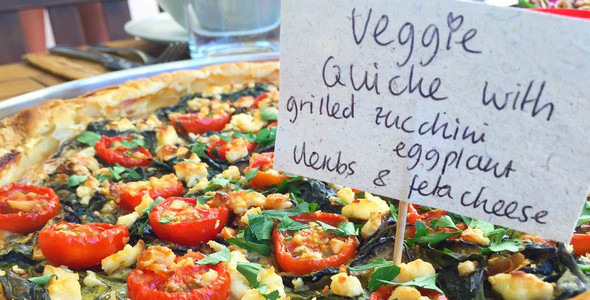 Veggie
Quiche with
grilled zucchini
eggplant
Herbs & feta cheese